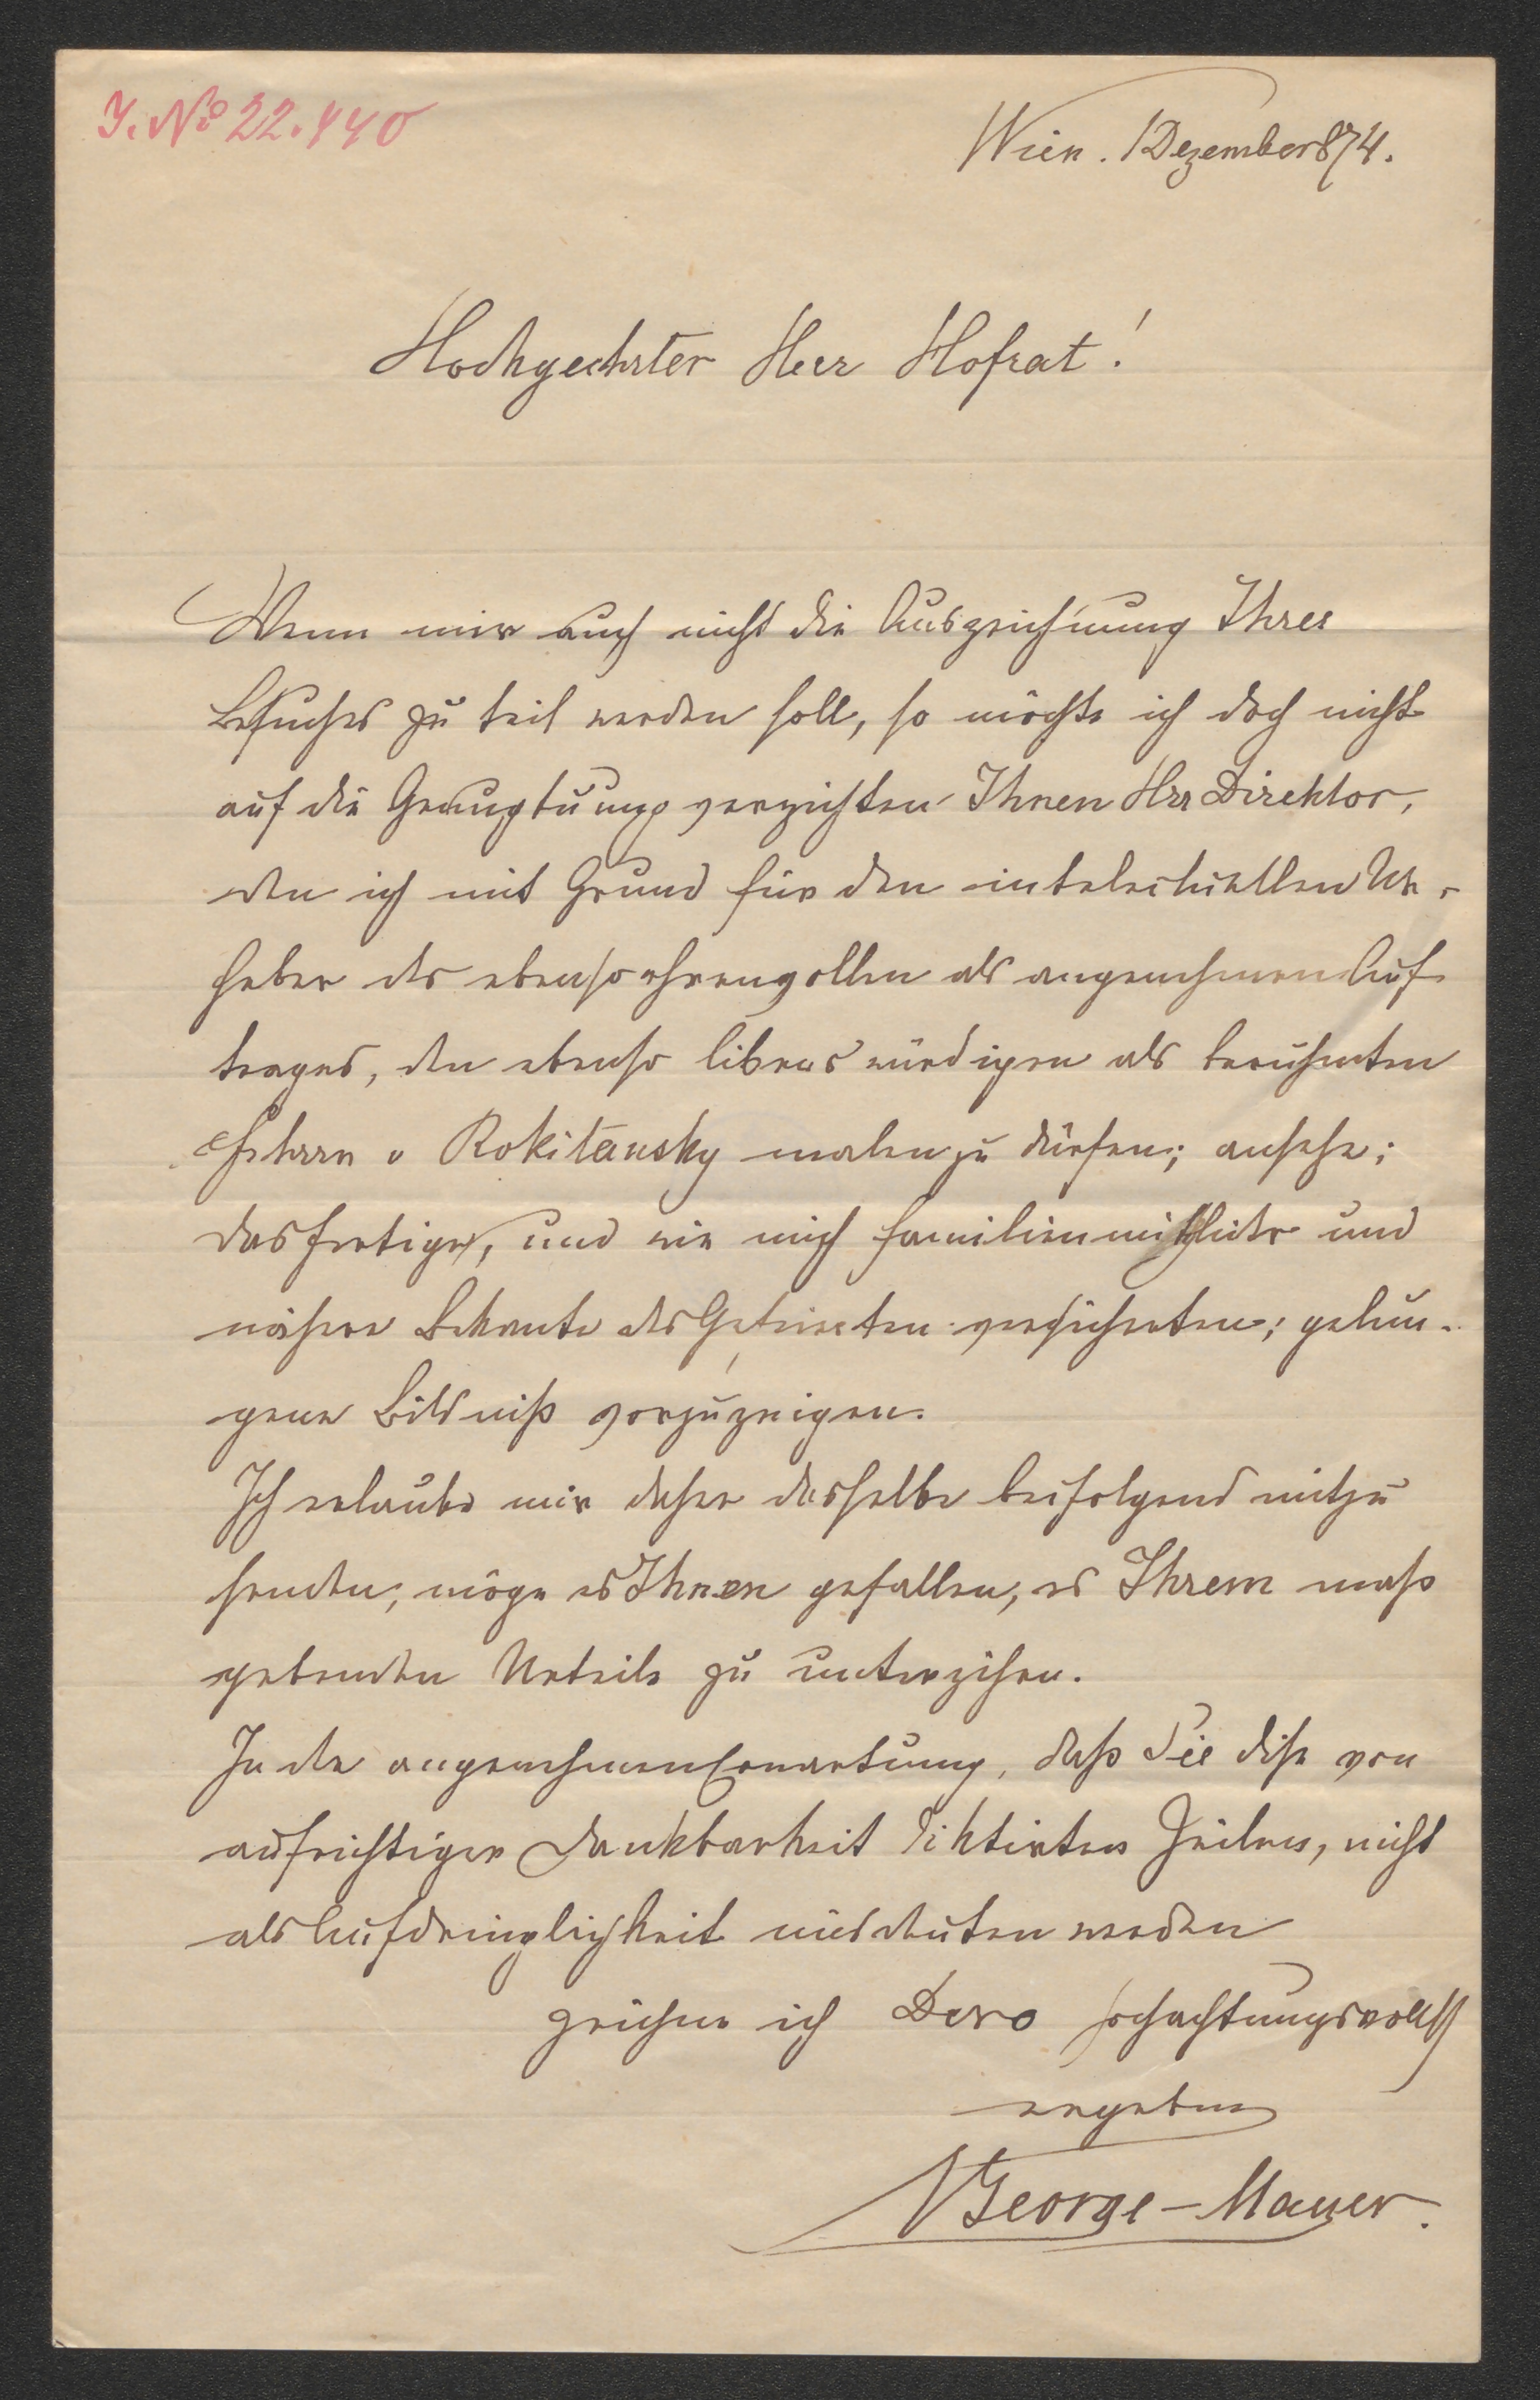 I. No 22.440
Wien. 1 Dezember 874.
Hochgeehrter Herr Hofrat!
Wenn mir auch nicht die Auszeichnung Ihres
Besuches zu teil werden soll, so möchte ich doch nicht
auf die Genugtuung verzichten Ihnen Herr Direktor,
den ich mit Grund für den intelectuellen Ur-
heber des ebenso ehrenvollen als angenehmen Auf-
trages, den ebenso libenswürdigen als berühmten
Freiherrn v Rokitansky malen zu dürfen; ansehe;
das fertige, und wie mich Familienmitglider und
nähere Bekante des Gefeierten versicherten; gelun-
gene Bildniß vorzuzeigen.
Ich erlaube mir daher dasselbe beifolgend mitzu
senden; möge es Ihnen gefallen, es Ihrem maß
gebenden Urteile zu unterzihen.
In der angenehmen Erwartung, daß Sie dise von
aufrichtiger Dankbarkeit diktirten Zeilen, nicht
als Aufdringlichkeit misdeuten werden
zeichne ich Dero hochachtungsvollst
ergebener
George-Mayer.